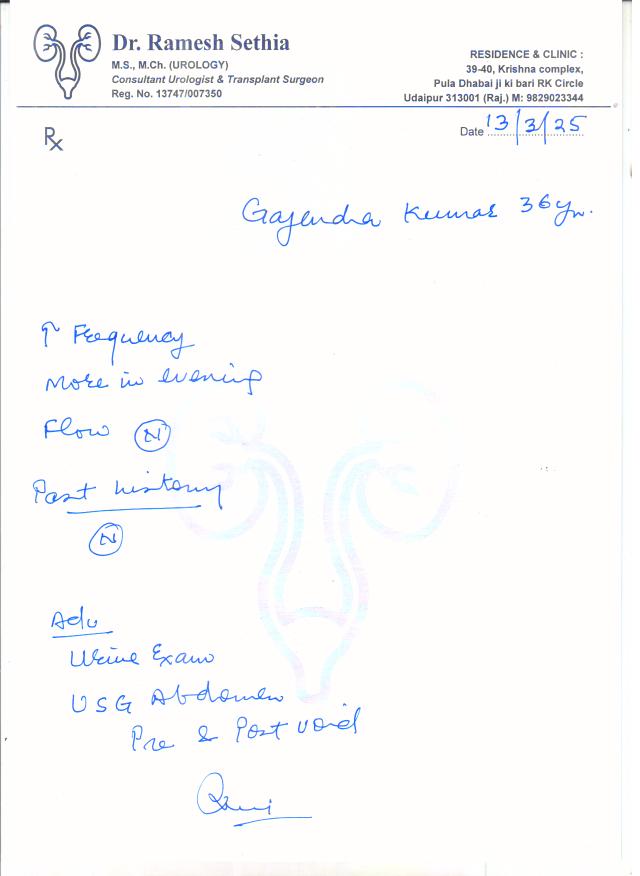 Dr. Ramesh Sethia
M.S., M.Ch. (UROLOGY)
Consultant Urologist & Transplant Surgeon
Reg. No. 13747/007350
RESIDENCE & CLINIC :
39-40, Krishna complex,
Pula Dhabai ji ki bari RK Circle
Udaipur 313001 (Raj.) M: 9829023344
Rx
Date 13/3/25
Gajendra Kumar 36 yr.
↑ Frequency
More in evening
Flow (N)
Past history
(N)
Adv
Urine Exam
USG Abdomen
Pre & Post void